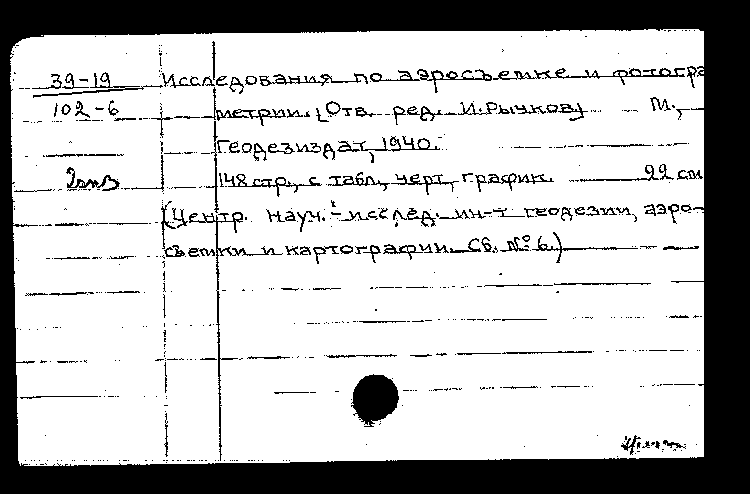 39-19 Исследования по аэросъемке и фотогра
102-6 метрии. [Отв. ред. И. Рычков] М.,
Геодезиздат, 1940.
2 экз 148 стр., с табл., черт., график. 22 см
(Центр. науч.-исслед. ин-т геодезии, аэро-
съемки и картографии. Сб. № 6.)